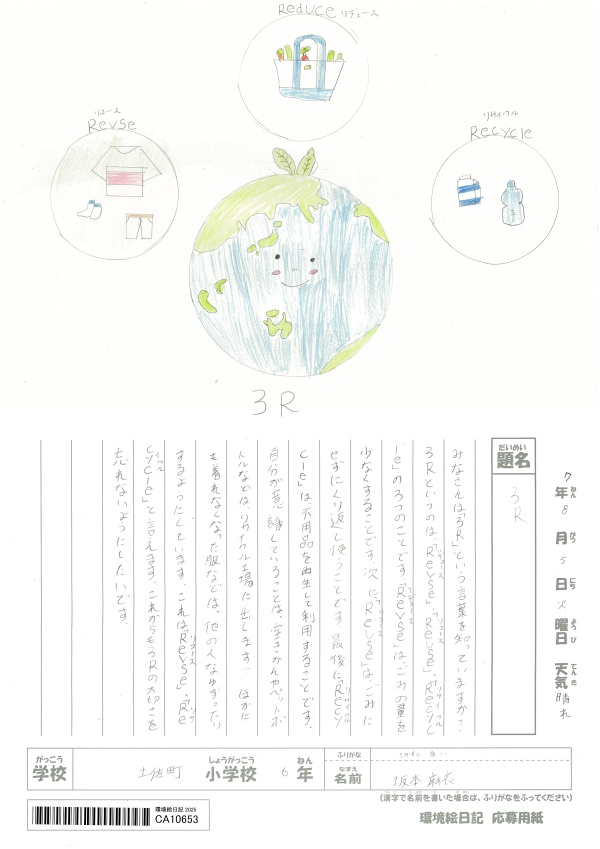 Reduce リデュース
リユース
Revse
リサイクル
Recycle
3R
7年8月5日火曜日 天気晴れ
ねん がつ にち ようび てんき
だいめい
題名
3R
みなさんは「3R」という言葉を知っていますか?
3Rというのは、「Revse」、「Revse」、「Recycl
e」の3つのことです。「Revse」は、ごみの量を
少なくすることです。次に「Revse」は、ごみに
せずにくり返し使うことです。最後に「Recy
cle」は、不用品を再生して利用することです。
自分が意識していることは、空きかんやペットボ
トルなどは、リサイクル工場に出します。ほかに
も着れなくなった服などは、他の人などゆずったり
するようにしています。これは「Revse」、「Re
cycle」と言えます。これからも3Rの大切さを
忘れないようにしたいです。
がっこう
学校
土佐町
しょうがっこう
小学校
6
ねん
年
ふりがな
なまえ
名前
坂本麻衣
(漢字で名前を書いた場合は、ふりがなをふってください)
環境絵日記 2025
CA10653
環境絵日記 応募用紙